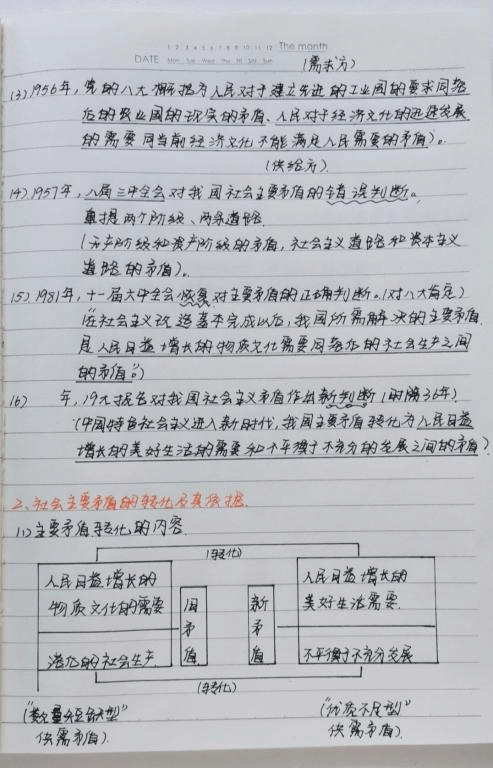 1 2 3 4 5 6 7 8 9 10 11 12 The month
DATE Mon Tue Wed Thu Fri Sat Sun
(需求方)
(3) 1956年, 党的八大概括为人民对于建立先进的工业国的要求同落
后的农业国的现实的矛盾、人民对于经济文化的迅速发展
的需要同当前经济文化不能满足人民需要的矛盾)。
(供给方)
(4) 1957年, 八届三中全会对我国社会主要矛盾的错误判断。
重提两个阶级、两条道路
(无产阶级和资产阶级的矛盾, 社会主义道路和资本主义
道路的矛盾)。
(5) 1981年, 十一届六中全会恢复对主要矛盾的正确判断。(对八大肯定)
("在社会主义改造基本完成以后, 我国所需解决的主要矛盾
是人民日益增长的物质文化需要同落后的社会生产之间
的矛盾"。)
(6) 年, 19大报告对我国社会主义矛盾作出新判断 (时隔36年)
(中国特色社会主义进入新时代, 我国主要矛盾转化为人民日益
增长的美好生活的需要和不平衡不充分的发展之间的矛盾)
2、社会主要矛盾的转化及其依据.
(1) 主要矛盾转化的内容.
(转化)
人民日益增长的
物质文化的需要
落后的社会生产.
旧矛盾
新矛盾
人民日益增长的
美好生活需要.
不平衡不充分发展
(转化)
("数量短缺型"
供需矛盾).
("优质不足型"
供需矛盾).